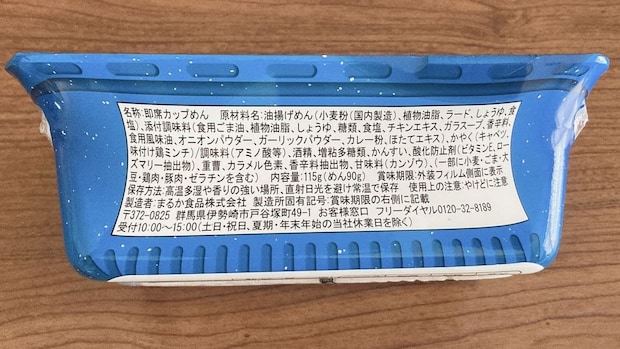 名称:即席カップめん 原材料名:油揚げめん(小麦粉(国内製造)、植物油脂、ラード、しょうゆ、食
塩)、添付調味料(食用ごま油、植物油脂、しょうゆ、糖類、食塩、チキンエキス、ガラスープ、香辛料、
食用風味油、オニオンパウダー、ガーリックパウダー、カレー粉、ほたてエキス)、かやく(キャベツ、
味付け鶏ミンチ)/調味料(アミノ酸等)、酒精、増粘多糖類、かんすい、酸化防止剤(ビタミンE、ロー
ズマリー抽出物)、重曹、カラメル色素、香辛料抽出物、甘味料(カンゾウ)、(一部に小麦・ごま・大
豆・鶏肉・豚肉・ゼラチンを含む) 内容量:115g(めん90g) 賞味期限:外装フィルム側面に表示
保存方法:高温多湿や香りの強い場所、直射日光を避け常温で保存 使用上の注意:やけどに注意
製造者:まるか食品株式会社 製造所固有記号:賞味期限の右側に記載
〒372-0825 群馬県伊勢崎市戸谷塚町49-1 お客様窓口 フリーダイヤル0120-32-8189
受付10:00~15:00(土日・祝日、夏期・年末年始の当社休業日を除く)